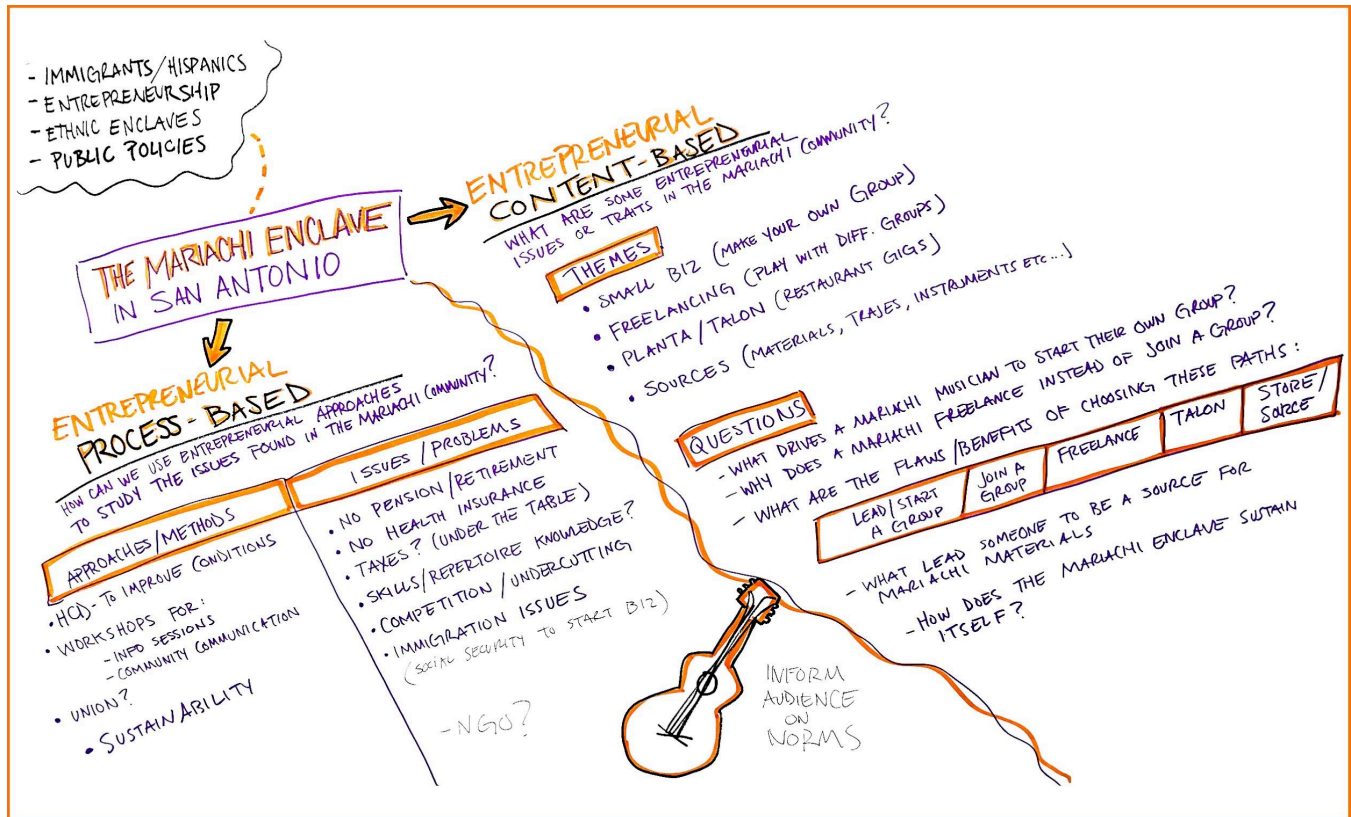 - IMMIGRANTS/HISPANICS
- ENTREPRENEURSHIP
- ETHNIC ENCLAVES
- PUBLIC POLICIES
THE MARIACHI ENCLAVE
IN SAN ANTONIO
ENTREPRENEURIAL
CONTENT-BASED
WHAT ARE SOME ENTREPRENEURIAL
ISSUES OR TRAITS IN THE MARIACHI COMMUNITY?
THEMES
• SMALL BIZ (MAKE YOUR OWN GROUP)
• FREELANCING (PLAY WITH DIFF. GROUPS)
• PLANTA/TALON (RESTAURANT GIGS)
• SOURCES (MATERIALS, TRAJES, INSTRUMENTS ETC...)
QUESTIONS
- WHAT DRIVES A MARIACHI MUSICIAN TO START THEIR OWN GROUP?
- WHY DOES A MARIACHI FREELANCE INSTEAD OF JOIN A GROUP?
- WHAT ARE THE FLAWS/BENEFITS OF CHOOSING THESE PATHS:
LEAD/START
A GROUP
JOIN A
GROUP
FREELANCE
TALON
STORE/
SOURCE
- WHAT LEAD SOMEONE TO BE A SOURCE FOR
MARIACHI MATERIALS
- HOW DOES THE MARIACHI ENCLAVE SUSTAIN
ITSELF?
ENTREPRENEURIAL
PROCESS-BASED
HOW CAN WE USE ENTREPRENEURIAL APPROACHES
TO STUDY THE ISSUES FOUND IN THE MARIACHI COMMUNITY?
APPROACHES/METHODS
• HCD - TO IMPROVE CONDITIONS
• WORKSHOPS FOR:
- INFO SESSIONS
- COMMUNITY COMMUNICATION
• UNION?
• SUSTAINABILITY
ISSUES/PROBLEMS
• NO PENSION/RETIREMENT
• NO HEALTH INSURANCE
• TAXES? (UNDER THE TABLE)
• SKILLS/REPERTOIRE KNOWLEDGE?
• COMPETITION/UNDERCUTTING
• IMMIGRATION ISSUES
(SOCIAL SECURITY TO START BIZ)
- NGO?
INFORM
AUDIENCE
ON
NORMS